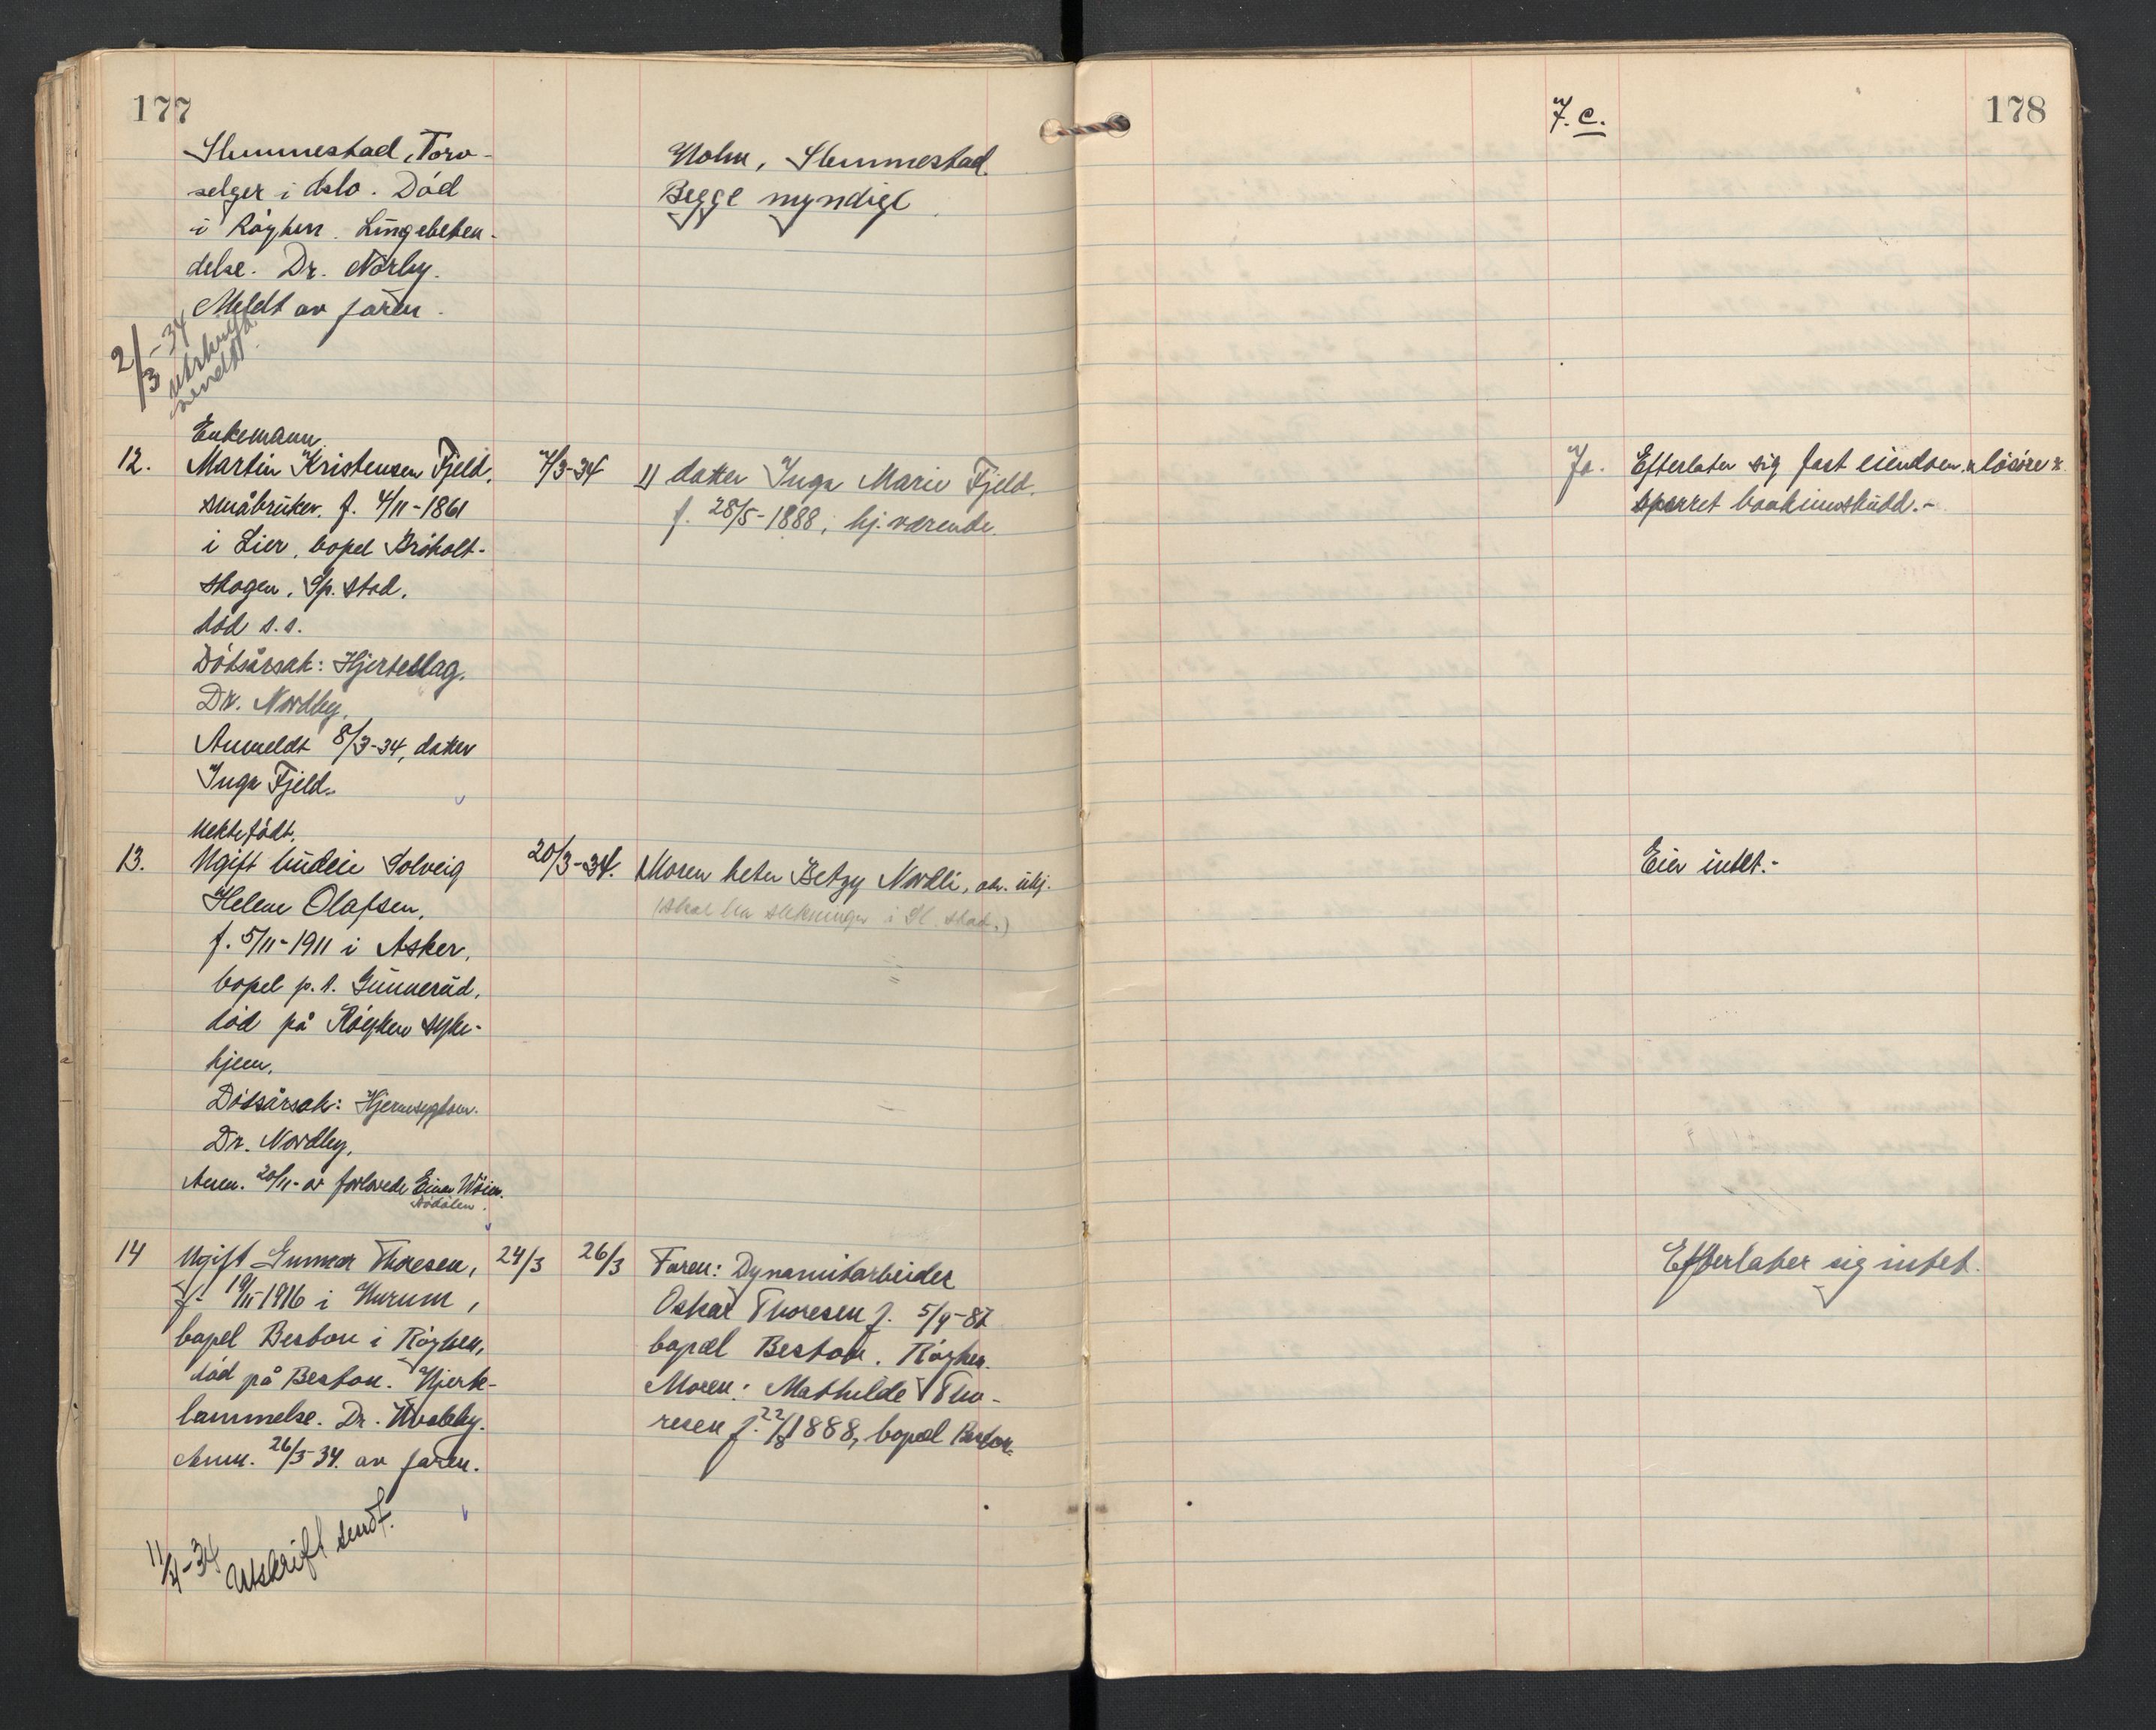 177
Slemmestad, Torv-
selger i Oslo. Död
i Röyken. Lungebeten-
delse. Dr. Nörby.
Meldt av faren.
2/3-34
utskrift
sendt.
Holm, Slemmestad.
Begge myndige
Enkemann
12. Martin Kristensen Fjeld,
småbruker. f. 4/11-1861
i Lier, bopel Bröholt-
skogen, Sp. stad,
död s.s.
Dödsårsak: Hjerteslag.
Dr. Nordby,
Anmeldt 8/3-34, datter
Inga Fjeld.
7/3-34
1) datter Inga Marie Fjeld.
f. 28/5-1888, hj. værende.
Uektefödt.
13. Ugift budeie Solveig
Helene Olafsen,
f. 5/11-1911 i Asker,
bopel p.t. Gunnerud,
död på Röyken syke-
hjem.
Dödsårsak: Hjernesygdom.
Dr. Nordby,
Anm. 20/11- av forlovede Einar
20/3-34.
Moren heter Betzy Nordli, adr. ubj.
(skal ha slektninger i Sl. stad.)
14 Ugift Gunnar Thoresen,
f. 19/11-1916 i Hurum,
bopel Besbon i Röyken,
död på Besbon. Hjerte-
lammelse. Dr.
Anm. 26/3-34. av faren.
24/3
26/3
Faren: Dynamitarbeider
Oskar Thoresen f. 5/9-87
bopæl Besbon. Röyken.
Moren: Mathilde Tho-
resen f. 22/8 1888, bopæl Besbon.
11/4-34 Utskrift sendt.
7. c.
178
Ja. Efterlater sig fast eiendom, lösöre &
sperret bankinnskudd.-
Eier intet.-
Efterlater sig intet.